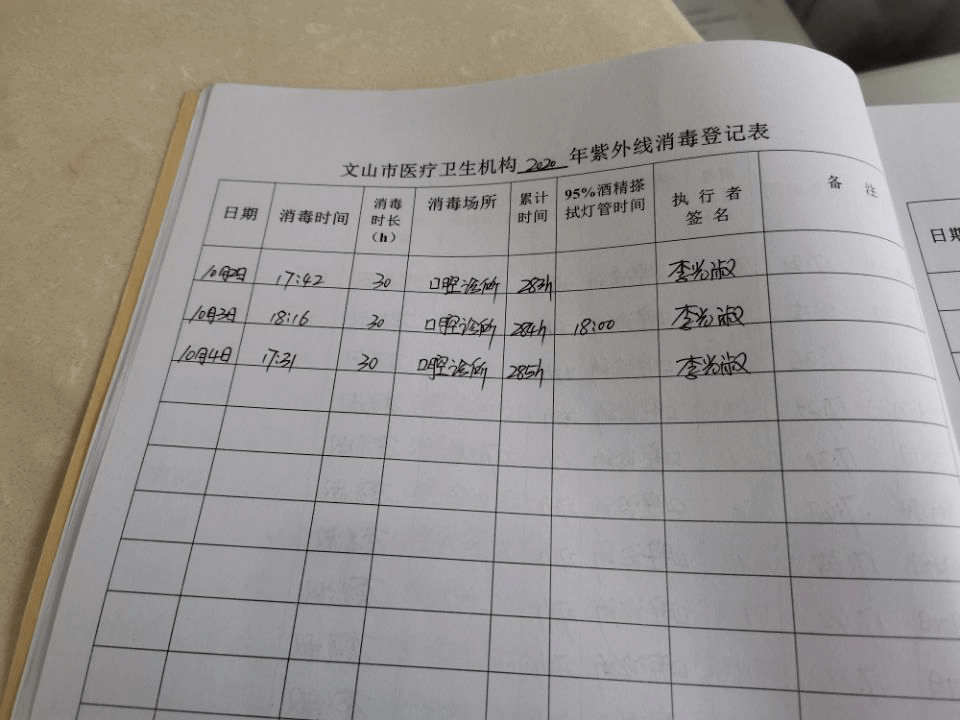 文山市医疗卫生机构 2020 年紫外线消毒登记表
日期 消毒时间 消毒时长（h） 消毒场所 累计时间 95%酒精搽拭灯管时间 执行者签名 备注
10月2日 17:42 30 口腔诊所 283h 李光淑
10月3日 18:16 30 口腔诊所 284h 18:00 李光淑
10月4日 17:31 30 口腔诊所 285h 李光淑
日期